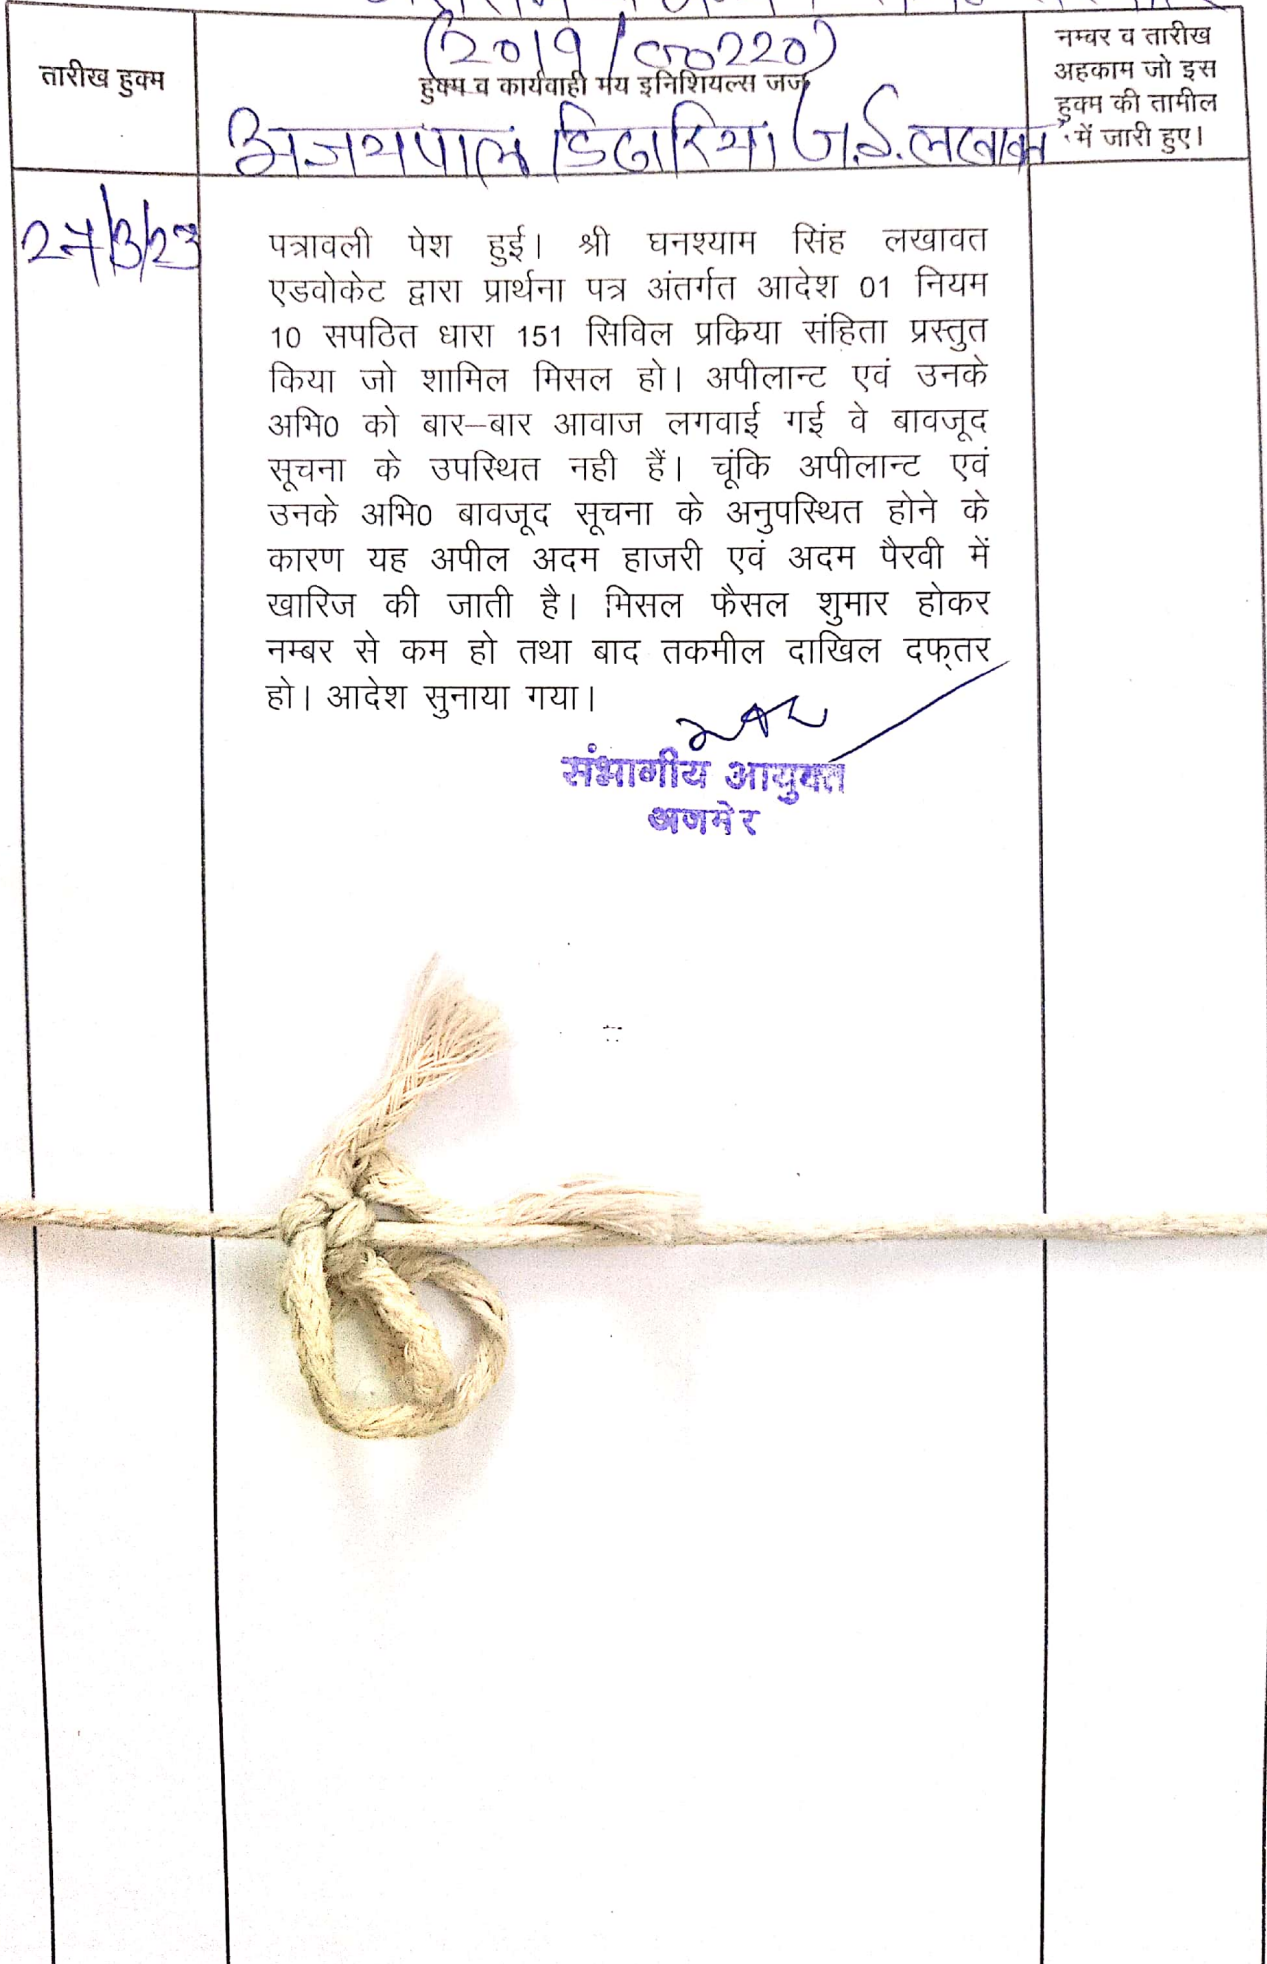 (2019/00220)
तारीख हुक्म
हुक्म व कार्यवाही मय इनिशियल्स जज
नम्बर व तारीख
अहकाम जो इस
हुक्म की तामील
में जारी हुए।
अजयपाल डिढारिया
27/3/23
पत्रावली पेश हुई। श्री घनश्याम सिंह लखावत
एडवोकेट द्वारा प्रार्थना पत्र अंतर्गत आदेश 01 नियम
10 सपठित धारा 151 सिविल प्रकिया संहिता प्रस्तुत
किया जो शामिल मिसल हो। अपीलान्ट एवं उनके
अभि0 को बार–बार आवाज लगवाई गई वे बावजूद
सूचना के उपस्थित नही हैं। चूंकि अपीलान्ट एवं
उनके अभि0 बावजूद सूचना के अनुपस्थित होने के
कारण यह अपील अदम हाजरी एवं अदम पैरवी में
खारिज की जाती है। मिसल फैसल शुमार होकर
नम्बर से कम हो तथा बाद तकमील दाखिल दफ्तर
हो। आदेश सुनाया गया।
संभागीय आयुक्त
अजमेर